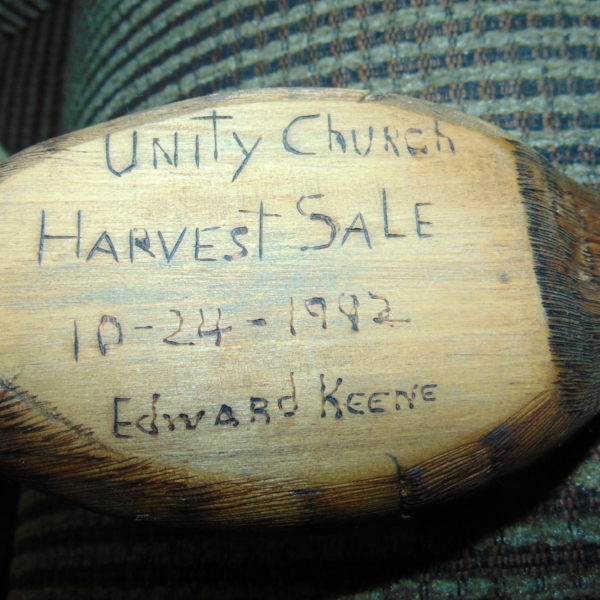 Unity Church
Harvest Sale
10-24-1982
Edward Keene